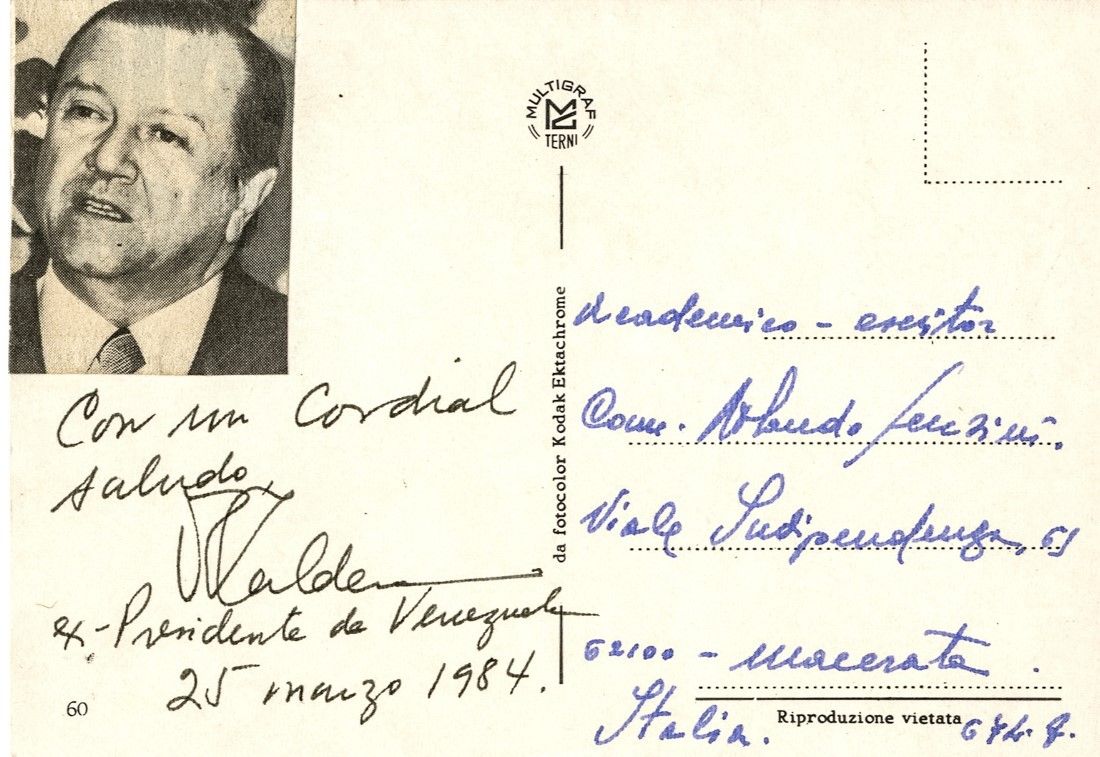 MULTIGRAF
TERNI
Con un Cordial
saludo,
R Caldera
ex-Presidente de Venezuela
25 marzo 1984.
60
da fotocolor Kodak Ektachrome
Academico - escritor
Comm. Rolando
Viale Indipendenza, 65
62100 - Macerata.
Italia.
Riproduzione vietata